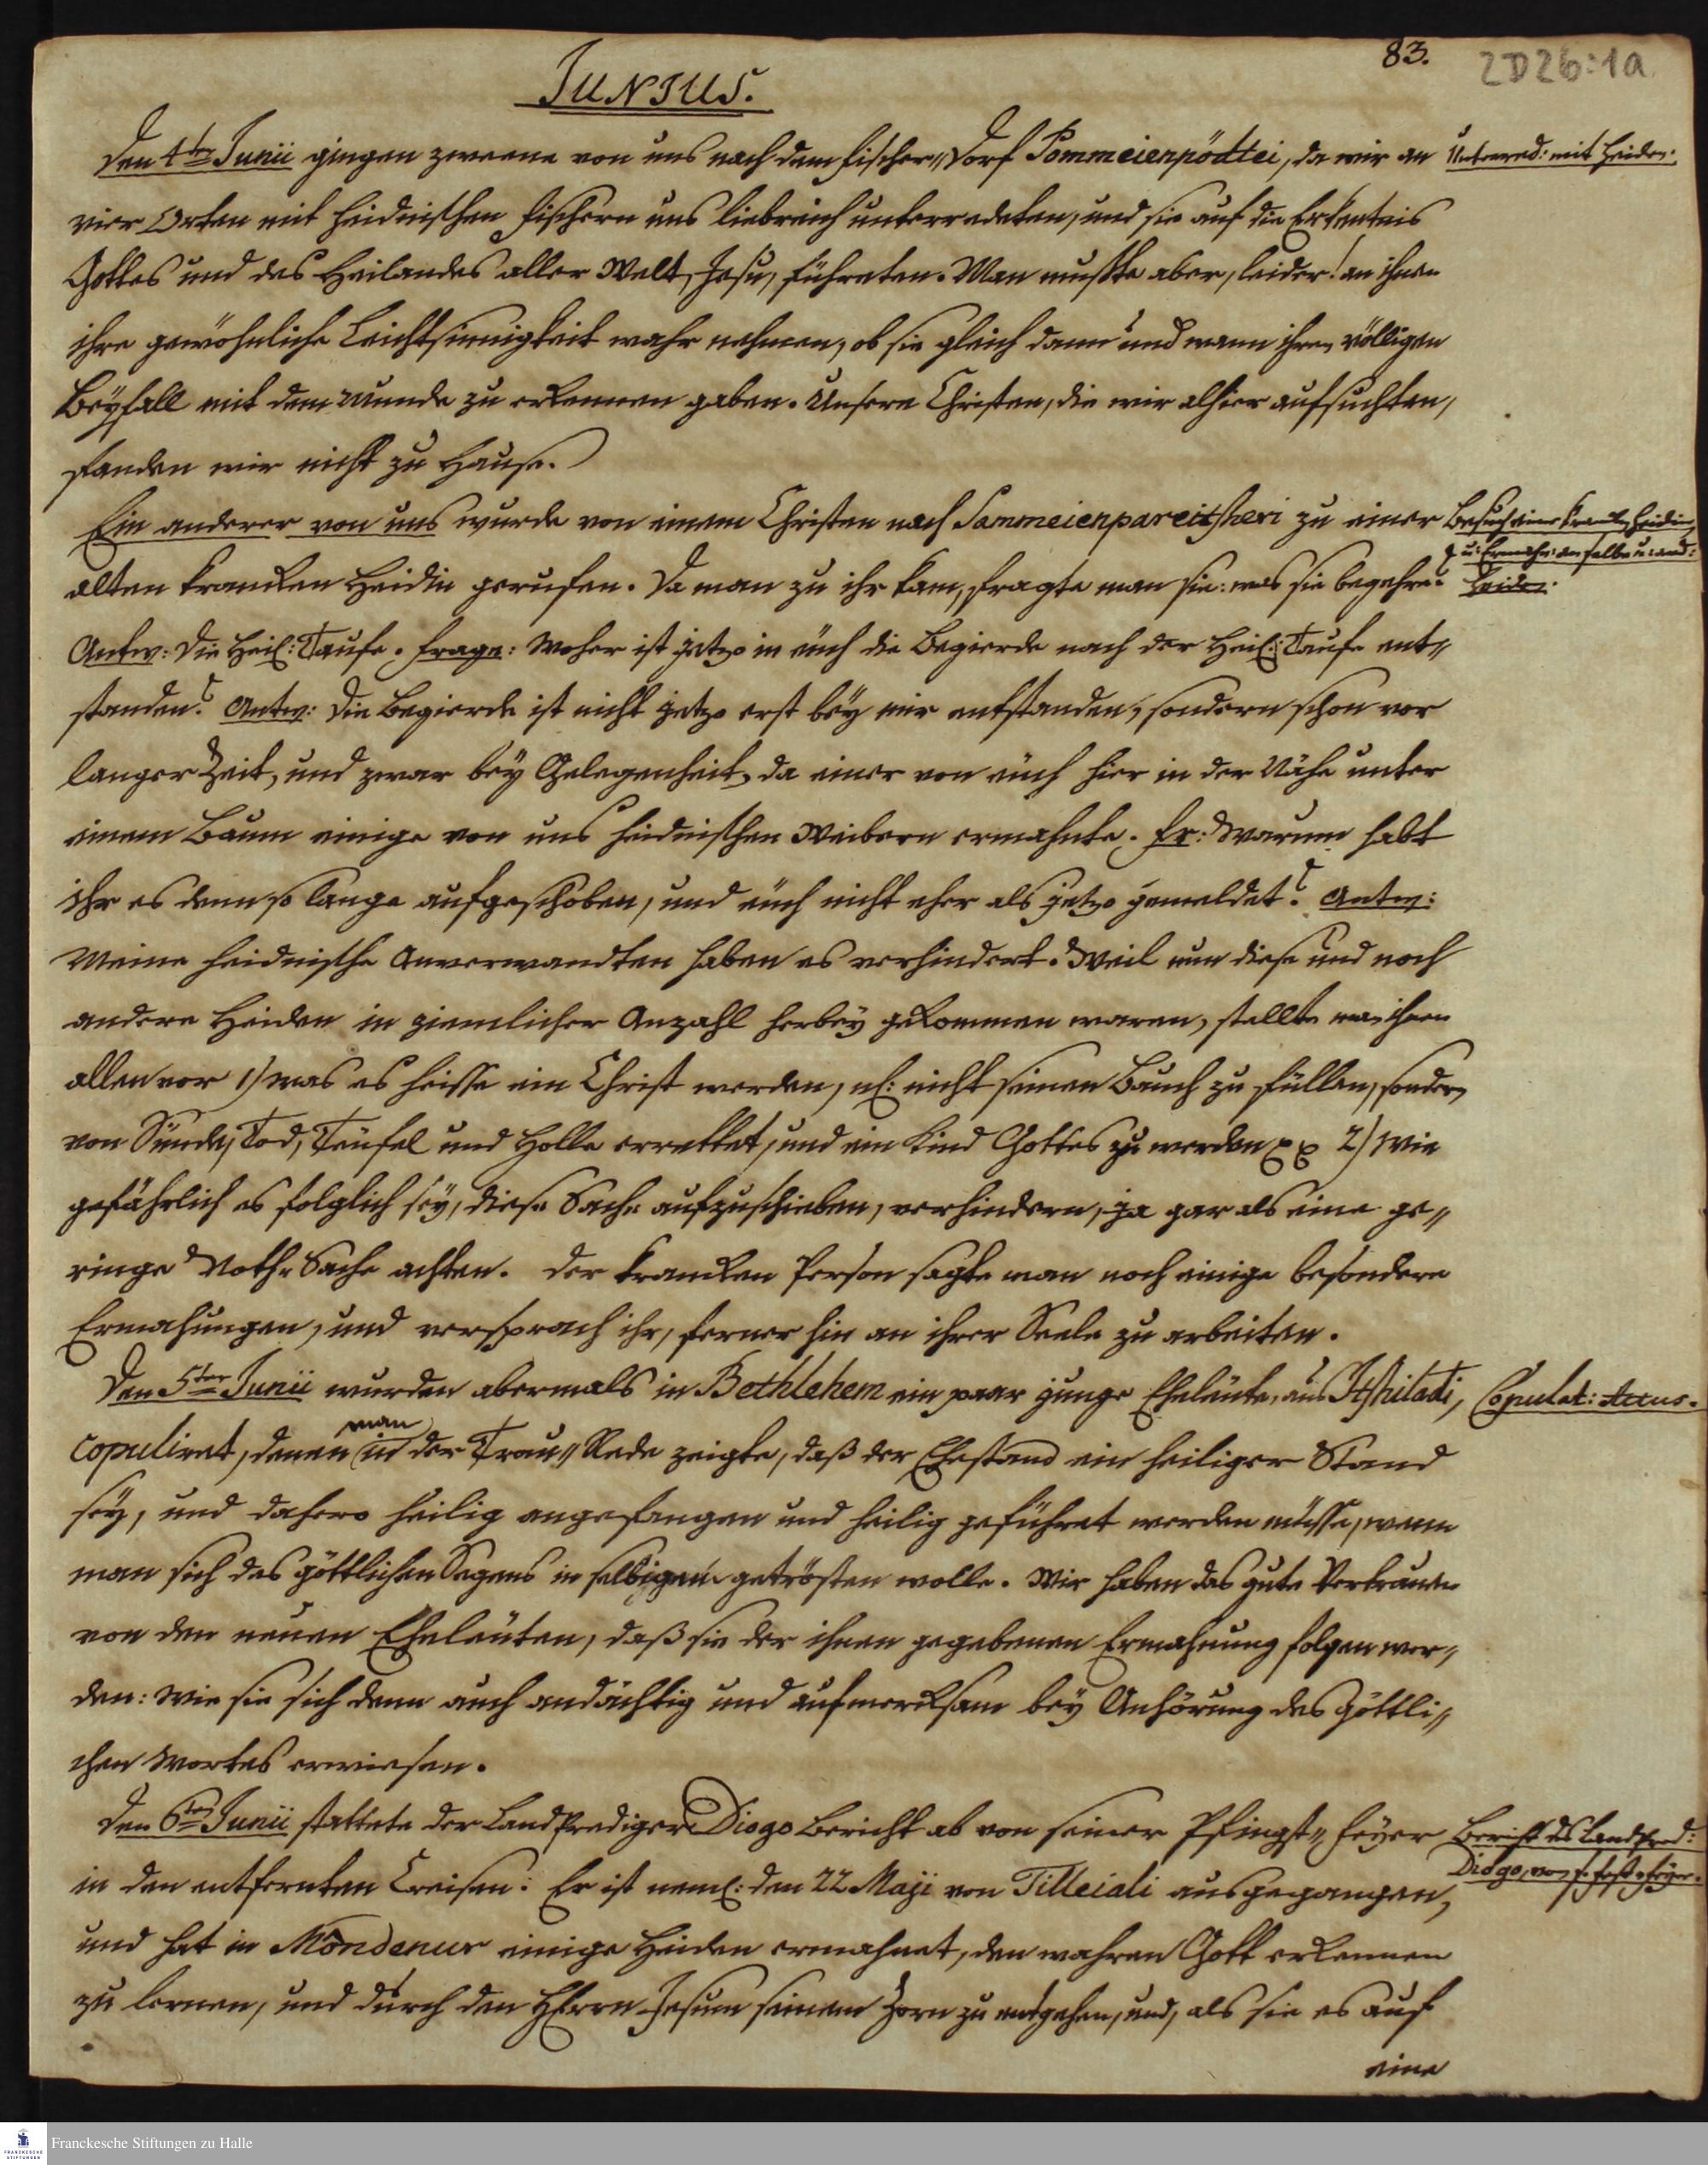 83.
2D26:1a
JUNIUS.
Den 4ten Junii gingen zweene von uns nach dem Fischer-Dorf Pommeienpödtei, da wir an
Unterred: mit Heiden.
vier Orten mit heidnischen Fischern uns liebreich unterredeten, und sie auf die Erkentnis
Gottes und des Heilandes aller Welt, Jesu, führeten. Man muste aber, leider! an ihnen
ihre gewöhnliche Leichtsinnigkeit wahr nehmen, ob sie gleich dann und wann ihren völligen
Beyfall mit dem Munde zu erkennen gaben. Unsere Christen, die wir alhier aufsuchten,
fanden wir nicht zu Hause.
Ein anderer von uns wurde von einem Christen nach Sammeienpareitscheri zu einer
Besuch einer kranken Heidin,
u: Ermahn: an selbe u: and:
Heiden.
alten krancken Heidin gerufen. Da man zu ihr kam, fragte man sie: was sie begehre?
Antw: Die Heil: Taufe. Frage: Woher ist jetzo in euch die Begierde nach der Heil: Taufe ent-
standen? Antw: Die Begierde ist nicht jetzo erst bey mir entstanden, sondern schon vor
langer Zeit, und zwar bey Gelegenheit, da einer von euch hier in der Nähe unter
einem Baum einige von uns heidnischen Weibern ermahnte. Fr: Warum habt
ihr es denn so lange aufgeschoben, und euch nicht eher als jetzo gemeldet? Antw:
Meine heidnische Anverwandten haben es verhindert. Weil nun diese und noch
andere Heiden in ziemlicher Anzahl herbey gekommen waren, stellte man ihnen
allen vor 1) was es heisse ein Christ werden, nl: nicht seinen Bauch zu füllen, sondern
von Sünde, Tod, Teufel und Holle errettet, und ein Kind Gottes zu werden 2) Wie
gefährlich es folglich sey, diese Sache aufzuschieben, verhindern, ja gar als eine ge-
ringe Noth-Sache achten. Der krancken Person sagte man noch einige besondere
Ermahungen, und versprach ihr, ferner hin an ihrer Seele zu arbeiten.
Den 5ten Junii wurden abermals in Bethlehem ein paar junge Eheleute, aus Itshiladi,
Copulat: Actus.
copuliret, denen man in der Trau-Rede zeigte, daß der Ehestand ein heiliger Stand
sey, und dahero heilig angefangen und heilig geführet werden müsse, wenn
man sich des göttlichen Segens in selbigem getrösten wolle. Wir haben das gute Vertrauen
von den neuen Eheleuten, daß sie der ihnen gegebenen Ermahnung folgen wer-
den: wie sie sich denn auch andächtig und aufmercksam bey Anhörung des göttli-
chen Wortes erwiesen.
Den 6ten Junii stattete der Landprediger Diogo Bericht ab von seiner Pfingst-Feyer
Bericht des Landpred:
Diogo, von s. Fest-Feyer.
in den entfernten Creisen. Er ist neml: den 22 Maji von Tilleiali ausgegangen,
und hat in Mondenur einige Heiden ermahnet, den wahren Gott erkennen
zu lernen, und durch den HErrn Jesum seinem Zorn zu entgehen, und, als sie es auf
eine
Franckesche Stiftungen zu Halle
FRANCKESCHE STIFTUNGEN